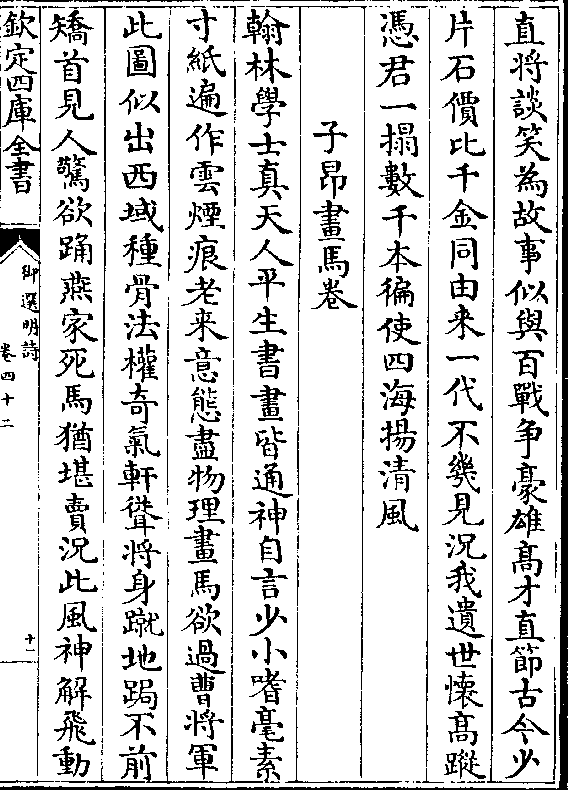 直將談笑為故事似與百戰争豪雄髙才直節古今少
片石價比千金同由来一代不幾見況我遺世懐髙蹤
憑君一搨數千本徧使四海揚清風
子昂畫馬卷
翰林學士真天人平生書畫皆通神自言少小嗜毫素
寸紙遍作雲煙痕老来意態盡物理畫馬欲過曹將軍
此圖似出西域種骨法權竒氣軒聳將身蹴地跼不前
矯首見人驚欲踊燕家死馬猶堪賣況此風神解飛動
欽定四庫全書
御選明詩
卷四十二
十一